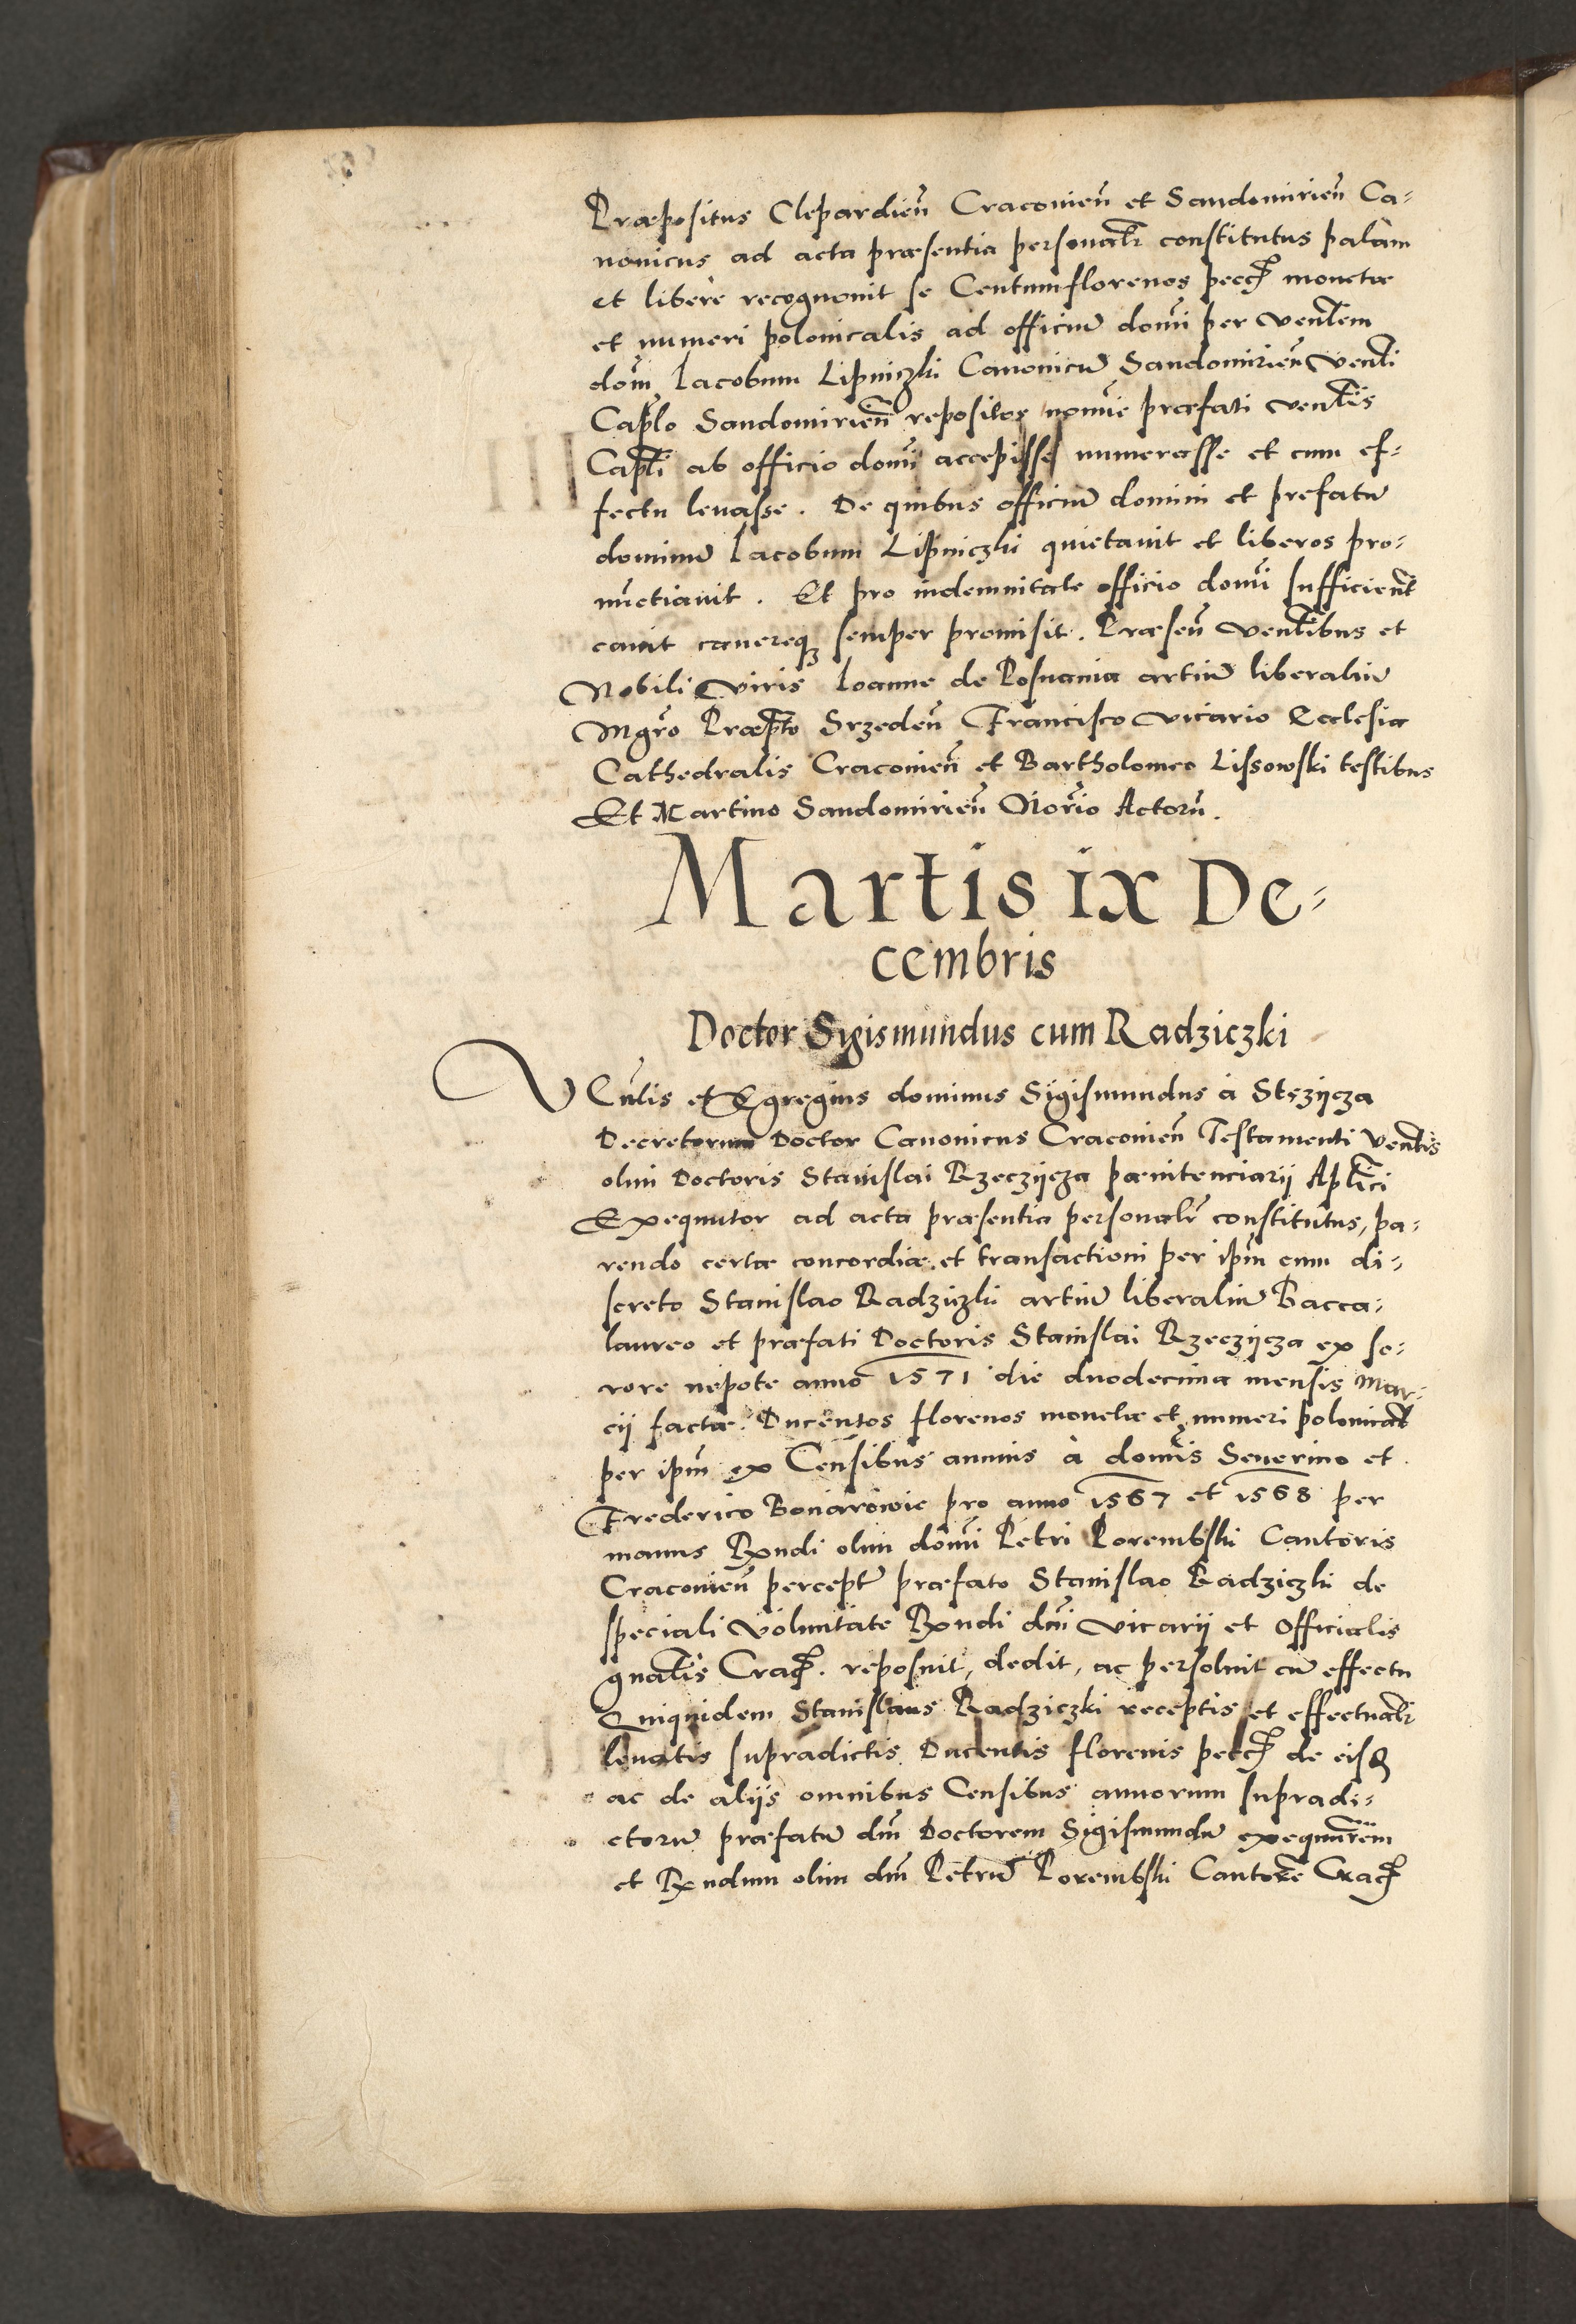 Præpositus Clepardień Craconień et Sandomirień Ca-
nonicus ad acta præsentia personalr constitutus palàm
et liberè recognouit se Centumflorenos pecc monetæ
et numeri polonicalis ad officiũ domi per ventem
dom Iacobum Lipniczki Canonicũ Sandomirień venti
Caplo Sandomirień repositos nomie præfati ventis
Capli ab officio domi accepisse numerasse et cum ef-
fectu leuasse. De quibus officiũ domini et prefatũ
dominũ Iacobum Lipniczki quietauit et liberos pro-
nũctiauit. Et pro indemnitate officio domi sufficient
cauit cauereqz semper promisit. Præseń ventibus et
Nobili viris Ioanne de Posnania artiũ liberaliũ
Mgro Præpto Srzedeń Francisco vicario Ecclesiæ
Cathedralis Craconień et Bartholomeo Lissowski testibus
Et Martino Sandomirień Norio Actorũ.
Martis ix De-
cembris
Doctor Sigismundus cum Radziczki
Venlis et Egregius dominus Sigismundus à Stęzijcza
Decretorum Doctor Canonicus Craconień Testamenti ventis
olim Doctoris Stanislai Rzeczijcza pœnitenciarij Aplici
Exequutor ad acta præsentia personalr constitutus, pa-
rendo certæ concordiæ et transactioni per ipm cum di-
screto Stanislao Radziczki artiũ liberaliũ Bacca-
laureo et præfati Doctoris Stanislai Rzeczijcza ex so-
rore nepote anno 1571 die duodecima mensis Mar-
cij factæ. Ducentos florenos monetæ et numeri polonicat
per ipm ex Censibus annuis à domis Seuerino et
Frederico Bonarowie pro anno 1567 et 1568 per
manus Rndi olim domi Petri Porembski Cantoris
Craconień percept præfato Stanislao Radziczki de
speciali voluntate Rndi dni vicarij et Officialis
gnalis Crac. reposuit, dedit, ac persoluit cũ effectu
Quiquidem Stanislaus Radziczki receptis et effectualr
leuatis supradictis Ducentis florenis pecc de eisd
ac de alijs omnibus Censibus annorum supradi-
ctorũ præfatũ dm Doctorem Sigismundũ exequutrem
et Rndum olim dm Petrũ Porembski Cantorẽ Crac